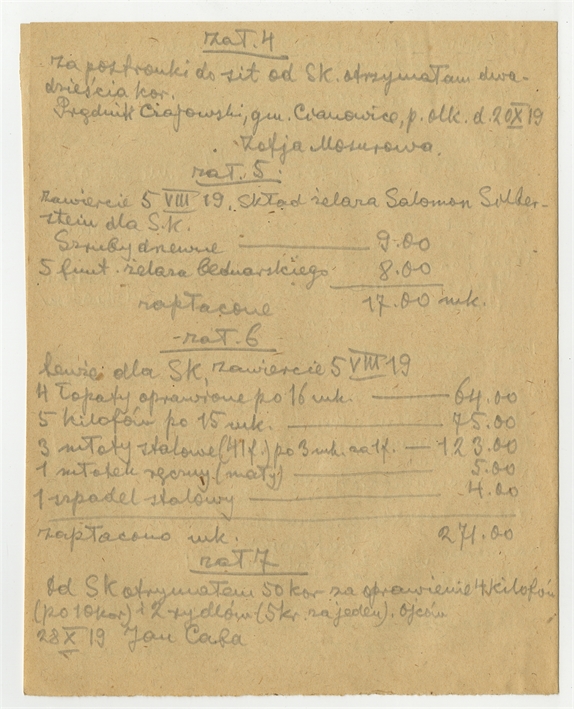 zał. 4
Za postronki do sit od SK. otrzymałam dwa-
dzieścia kor.
Prądnik Czajowski, gm. Cianowice, p. olk. d. 20 X 19
Zofja Mosurowa.
zał. 5
Zawiercie 5 VIII 19. Skład żelaza Salomon Silber-
stein dla S.K.
Szruby drewne 9.00
5 funt. żelaza bednarskiego 8.00
zapłacone 17.00 mk.
zał. 6
dla SK, Zawiercie 5 VIII 19
4 łopaty oprawione po 16 mk. 64.00
5 kilofów po 15 mk. 75.00
3 młoty stalowe (41 f.) po 3 mk. za 1 f. 123.00
1 młotek ręczny (mały) 5.00
1 szpadel stalowy 4.00
zapłacono mk. 271.00
zał 7
Od SK otrzymałem 50 kor za oprawienie 4 kilofów
(po 10 kor) i 2 rydlów (5 kr. za jeden). Ojców
28 X 19 Jan Caba